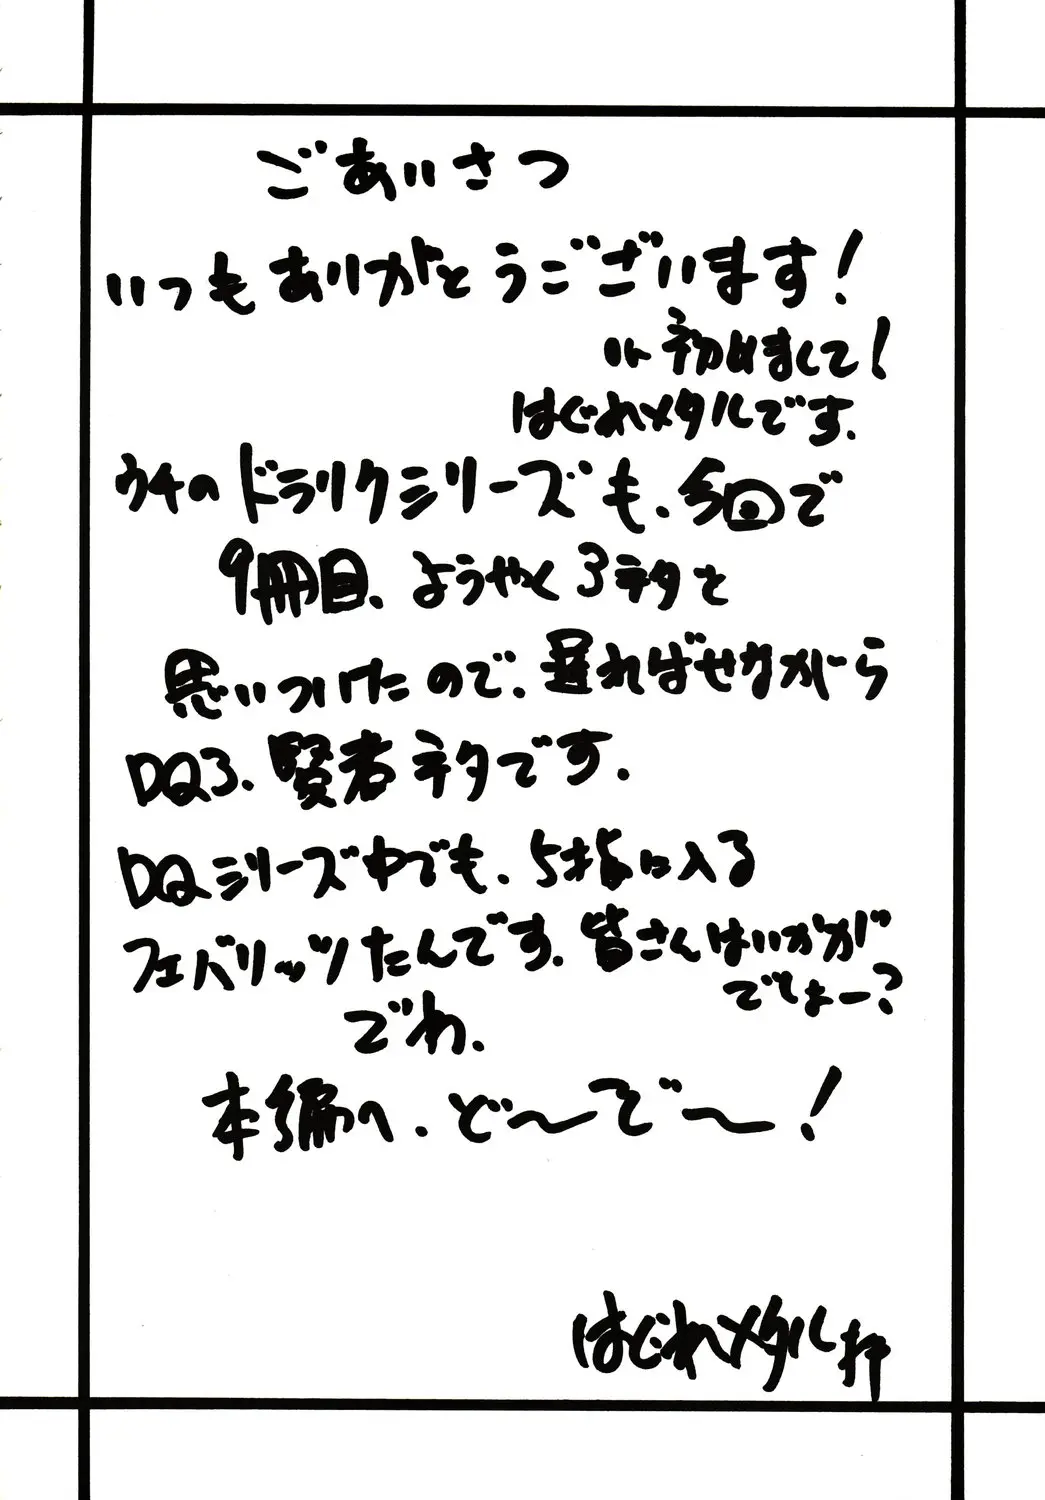 ごあいさつ
いつもありがとうございます!
初めまして!
はぐれメタルです.
ウチのドラクシリーズも、今回で
9冊目、ようやく3ネタと
思いついたので、遅ればせながら
DQ3、賢者ネタです.
DQシリーズ中でも、5指に入る
フェバリッツたんです.皆さんはいかが
でしょー?
でわ、
本編へ、ど〜ぞ〜!
はぐれメタル拝